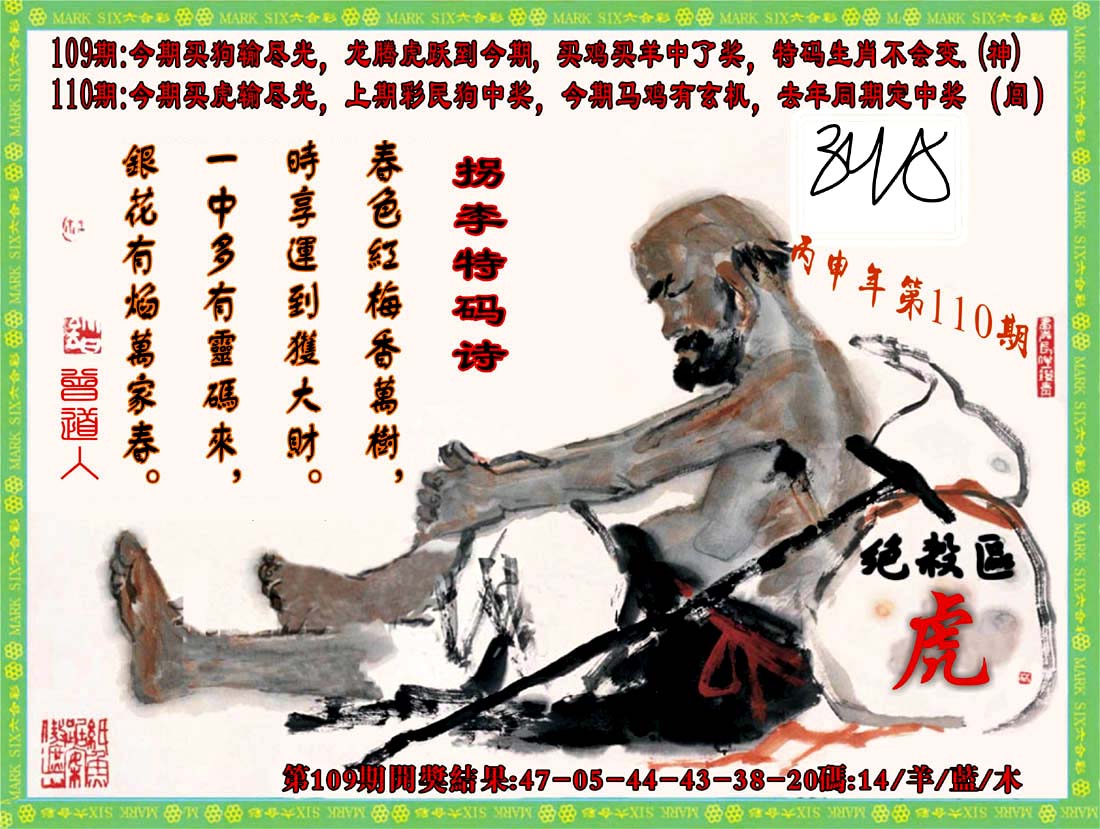 MARK SIX六合彩
109期:今期买狗输尽光，龙腾虎跃到今期，买鸡买羊中了奖，特码生肖不会变.(神)
110期:今期买虎输尽光，上期彩民狗中奖，今期马鸡有玄机，去年同期定中奖 (闾)
拐李特码诗
春色紅梅香萬樹，
時享運到獲大財。
一中多有靈碼來，
銀花有焰萬家春。
曾道人
丙申年第110期
绝殺區
虎
第109期開獎結果:47-05-44-43-38-20碼:14/羊/藍/木